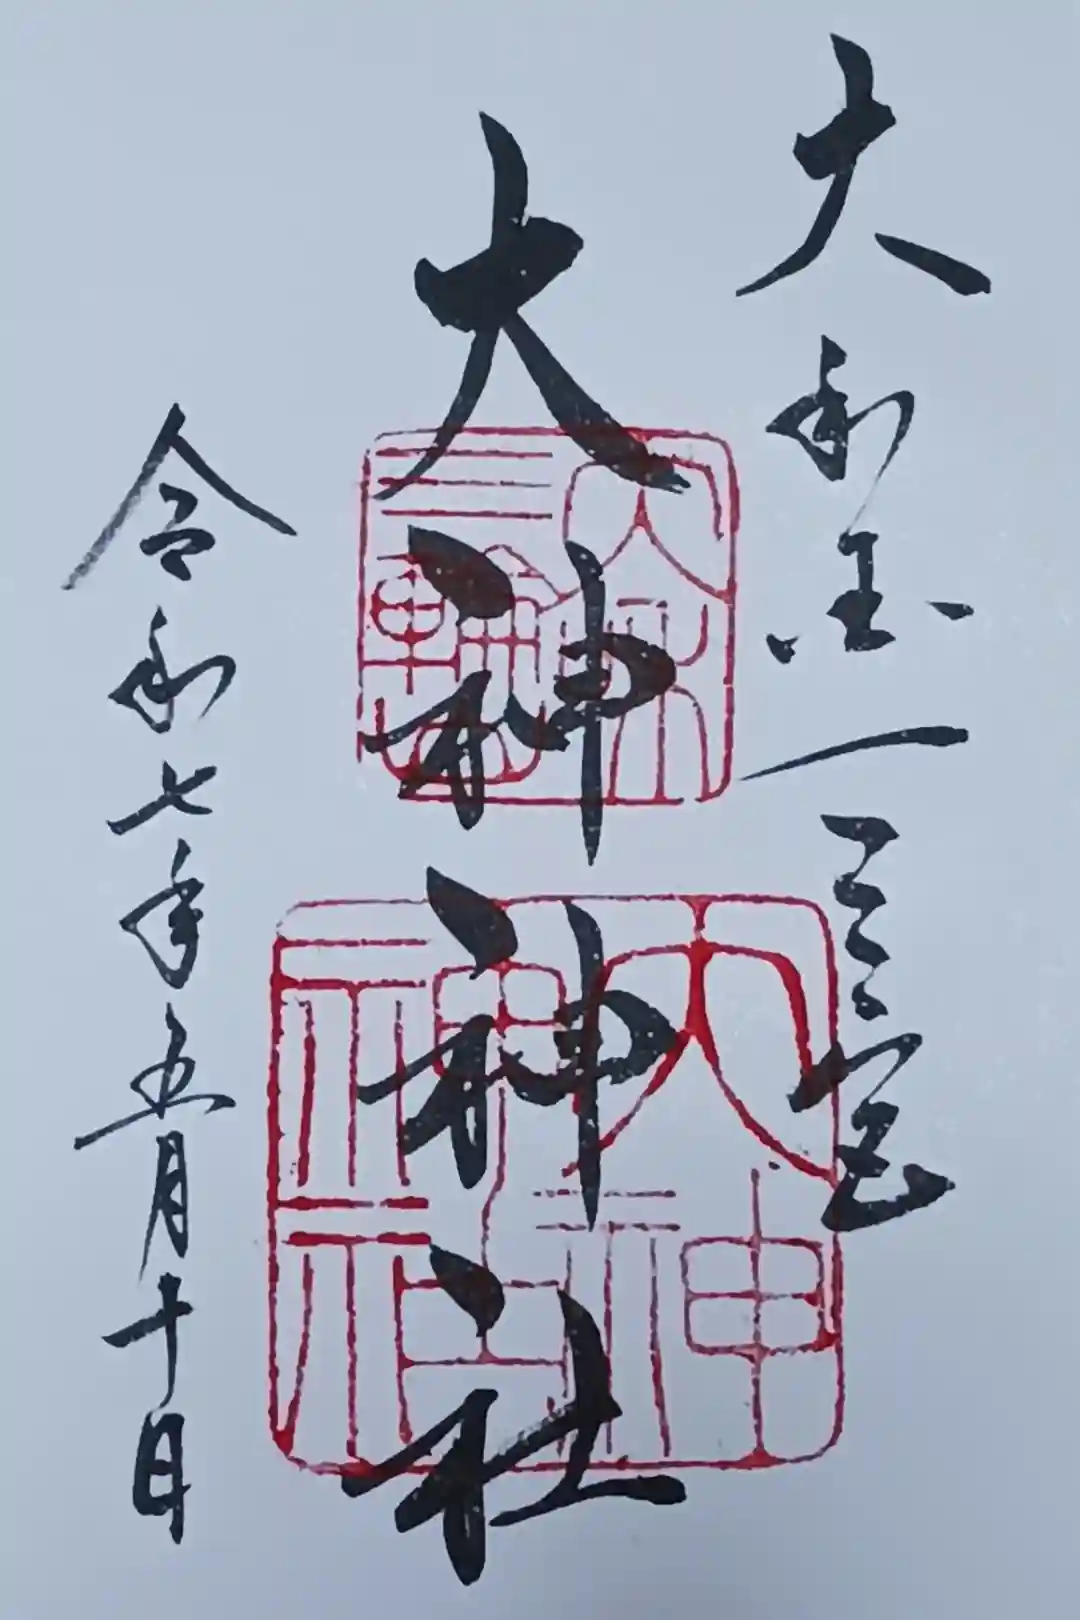 大和国一之宮
大神神社
令和七年五月十日
大神
神社